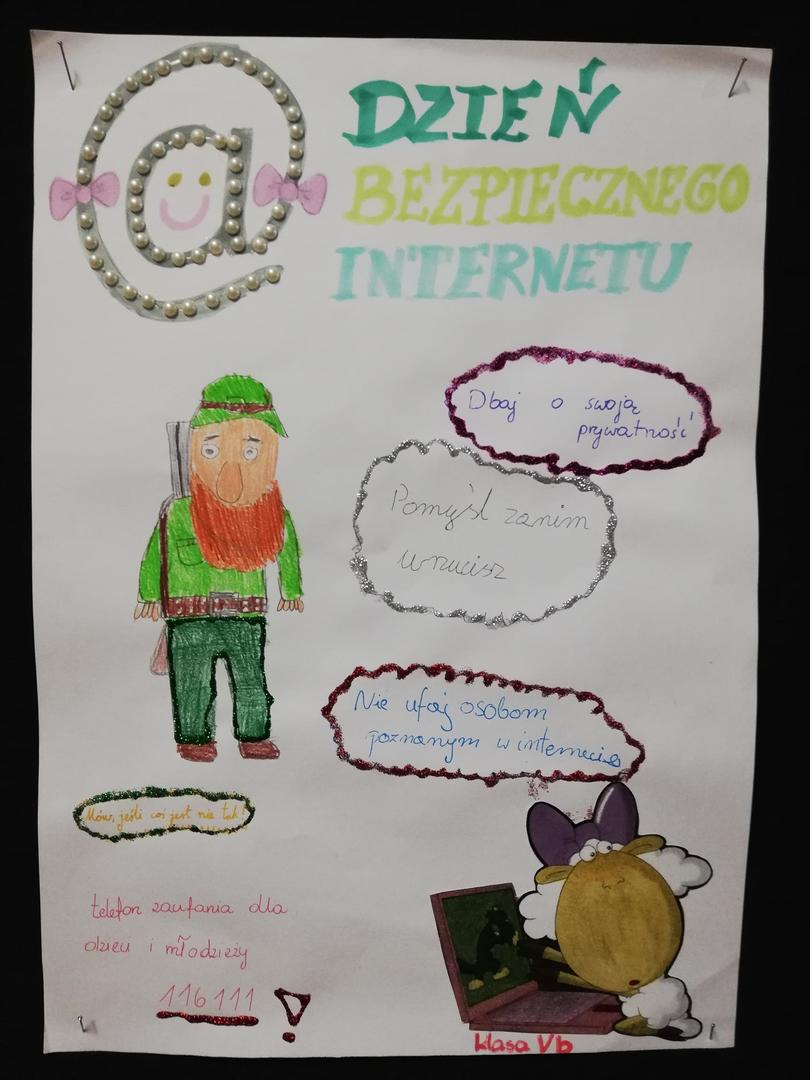 @
DZIEŃ
BEZPIECZNEGO
INTERNETU
Dbaj o swoją
prywatność
Pomyśl zanim
wrzucisz
Nie ufaj osobom
poznanym w internecie
Mów, jeśli coś jest nie tak!
telefon zaufania dla
dzieci i młodzieży
116 111 !
klasa Vb